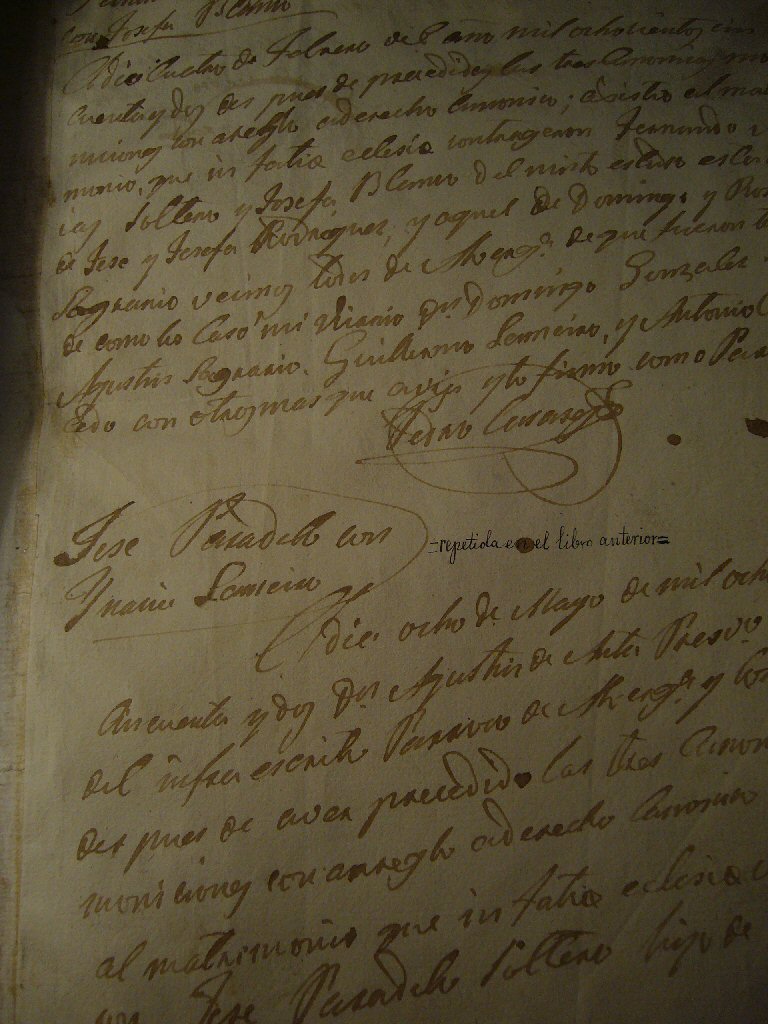 con Josefa Blanco
A dia Cuatro de Febrero del año mil ochocientos cin
cuenta y dos des pues de precedidos las tres Canonicas mo
niciones con areglo aderecho Canonico; asistio al matri
monio, que in fatie eclesie contrageron Fernando
Soltero y Josefa Blanco del misto estado es la
de Jose y Josefa Rodriguez, y aquel de Domingo y Ros
Sagrario vecinos todos de de que fueron
de como los Caso mi Dn Domingo Gonzalez
Agustin Sagrario, Guillermo Lameiro, y Antonio
con otros mas que y lo firmo como Par
Jose Paradelo con
=repetida en el libro anterior=
Maria Lameiro
A dia ocho de Mayo de mil ocho
cincuenta y dos Dn Agustin de Presvo
del infra escrito Parroco de y
des pues de aver precedido las tres Canon
moniciones con arreglo aderecho Canonico
al matrimonio que in fatie eclesie
Jose Paradelo Soltero hijo de